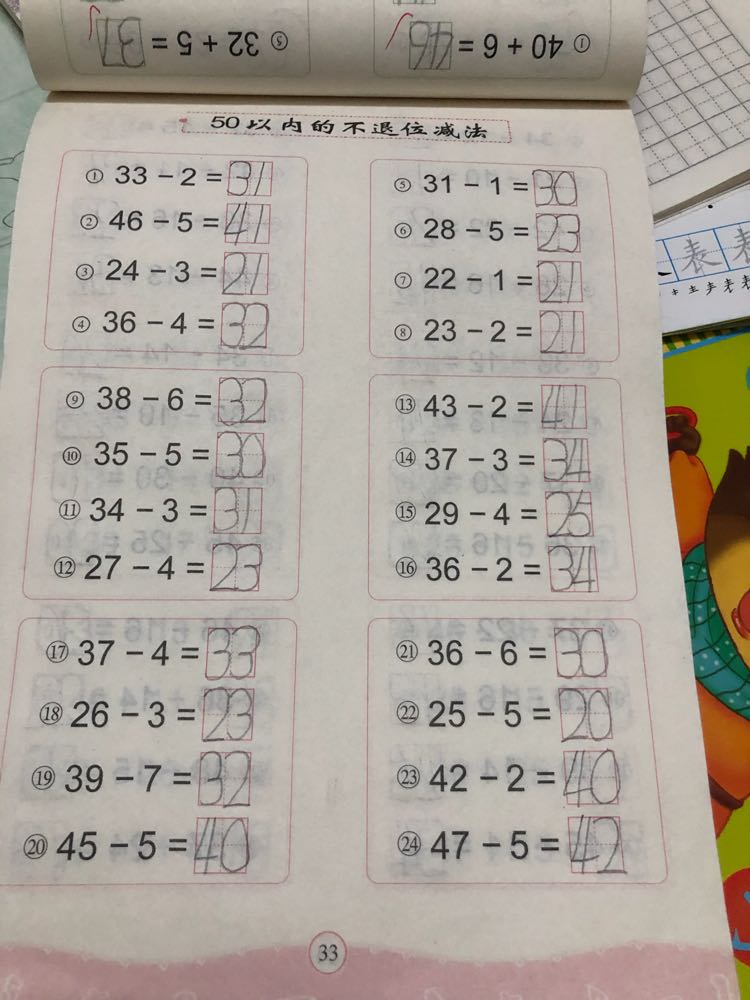 ⑤ 32 + 5 = 37
① 40 + 6 = 46
50以内的不退位减法
① 33 − 2 = 31
② 46 − 5 = 41
③ 24 − 3 = 21
④ 36 − 4 = 32
⑤ 31 − 1 = 30
⑥ 28 − 5 = 23
⑦ 22 − 1 = 21
⑧ 23 − 2 = 21
⑨ 38 − 6 = 32
⑩ 35 − 5 = 30
⑪ 34 − 3 = 31
⑫ 27 − 4 = 23
⑬ 43 − 2 = 41
⑭ 37 − 3 = 34
⑮ 29 − 4 = 25
⑯ 36 − 2 = 34
⑰ 37 − 4 = 33
⑱ 26 − 3 = 23
⑲ 39 − 7 = 32
⑳ 45 − 5 = 40
㉑ 36 − 6 = 30
㉒ 25 − 5 = 20
㉓ 42 − 2 = 40
㉔ 47 − 5 = 42
33
表